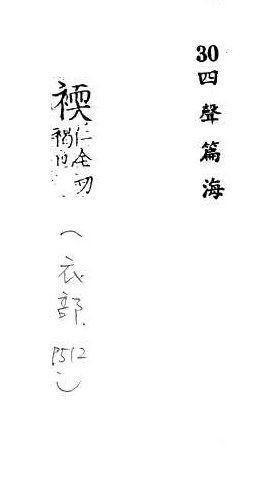 30
四聲篇海
仁全切
(衣部.
P512)